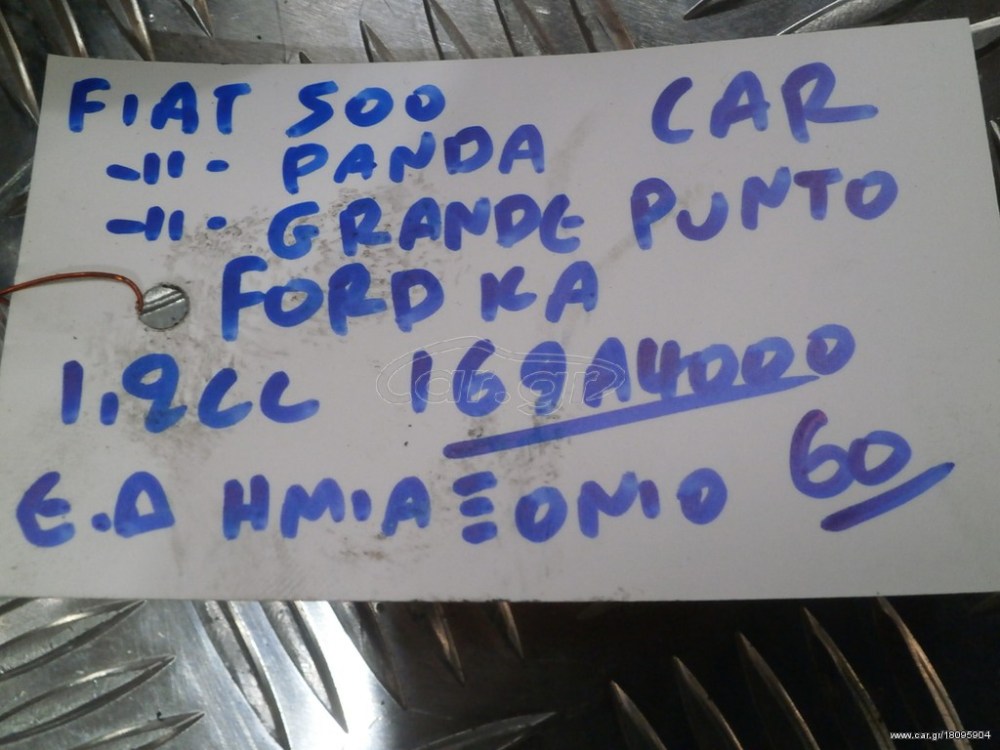 FIAT 500 CAR
-11- PANDA
-11- GRANDE PUNTO
FORD KA
1.2CC 169A4000
60
Ε.Δ ΗΜΙΑΞΟΝΙΟ
car.gr
www.car.gr/18095904